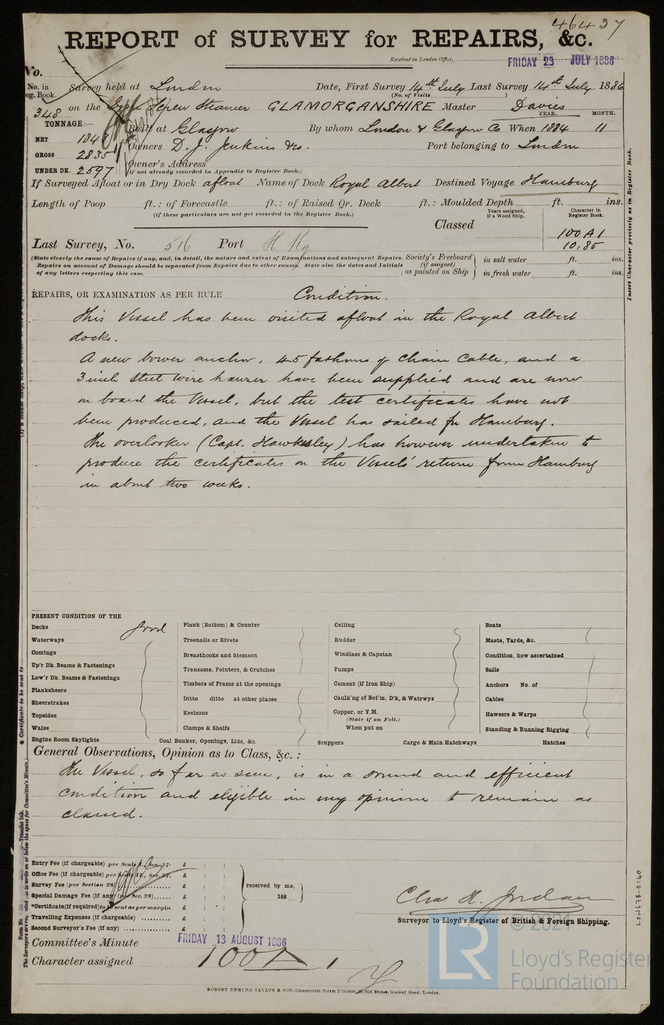 46437
REPORT of SURVEY for REPAIRS, &c.
Received in London Office, FRIDAY 23 JULY 1886
No.
No. in Reg. Book. Survey held at London Date, First Survey 14th July Last Survey 14th July 1886
(No. of Visits )
348 on the Screw Steamer GLAMORGANSHIRE Master Davies
TONNAGE: YEAR. MONTH.
NET 1847 Built at Glasgow By whom London & Glasgow Co When 1884 11
GROSS 2835 Owners D. J. Jenkins & Co. Port belonging to London
UNDER DK. 2597 Owner's Address
(if not already recorded in Appendix to Register Book.)
If Surveyed Afloat or in Dry Dock afloat Name of Dock Royal Albert Destined Voyage Hamburg
Length of Poop ft.: of Forecastle ft.: of Raised Qr. Deck ft.: Moulded Depth ft. ins.
(if these particulars are not yet recorded in the Register Book.)
Classed Years assigned, if a Wood Ship. Character in Register Book.
100A1
10,85
Last Survey, No. 516 Port
(State clearly the cause of Repairs if any, and, in detail, the nature and extent of Examinations and subsequent Repairs. Society's Freeboard in salt water ft. ins.
Repairs on account of Damage should be separated from Repairs due to other causes. State also the dates and initials (if assigned)
of any letters respecting this case. as painted on Ship in fresh water ft. ins.
Insert Character precisely as in Register Book.
REPAIRS, OR EXAMINATION AS PER RULE Condition.
This Vessel has been visited afloat in the Royal Albert
docks.
A new bower anchor, 45 fathoms of Chain Cable, and a
3 inch steel wire hawser have been supplied and are now
on board the Vessel, but the test certificates have not
been produced, and the Vessel has sailed for Hamburg.
The overlooker (Capt. Hawksley) has however undertaken to
produce the certificates on the Vessels' return from Hamburg
in about two weeks.
PRESENT CONDITION OF THE
Decks good
Waterways
Comings
Up'r Dk. Beams & Fastenings
Low'r Dk. Beams & Fastenings
Planksheers
Sheerstrakes
Topsides
Wales
Engine Room Skylights
Plank (Bottom) & Counter
Treenails or Rivets
Breasthooks and Stemson
Transoms, Pointers, & Crutches
Timbers of Frame at the openings
Ditto ditto at other places
Keelsons
Clamps & Shelfs
Coal Bunker, Openings, Lids, &c.
Ceiling
Rudder
Windlass & Capstan
Pumps
Cement (if Iron Ship)
Caulk'ng of Bot'm, D'k, & Watrwys
Copper, or Y.M.
(State if on Felt.)
When put on
Scuppers
Cargo & Main Hatchways
Boats
Masts, Yards, &c.
Condition, how ascertained
Sails
Anchors No. of
Cables
Hawsers & Warps
Standing & Running Rigging
Hatches
General Observations, Opinion as to Class, &c.:
The Vessel, so far as seen, is in a sound and efficient
condition and eligible in my opinion to remain as
classed.
Entry Fee (if chargeable) per £ : :
Office Fee (if chargeable) per £ : :
Survey Fee (per Section 28) £ : :
Special Damage Fee (if any) (per Sec. 28) £ : :
*Certificate (if required) to be sent as per margin
Travelling Expenses (if chargeable) £ : :
Second Surveyor's Fee (if any) £ : :
received by me,
188
Chas. H. Jordan
Surveyor to Lloyd's Register of British & Foreign Shipping.
Committee's Minute FRIDAY 13 AUGUST 1886
Character assigned 100A1
ROBERT EDMUND TAYLOR & SON, Commercial Steam Printers, Old Street, Goswell Road, London.
LON678-0140
LR
© 2021
Lloyd's Register
Foundation